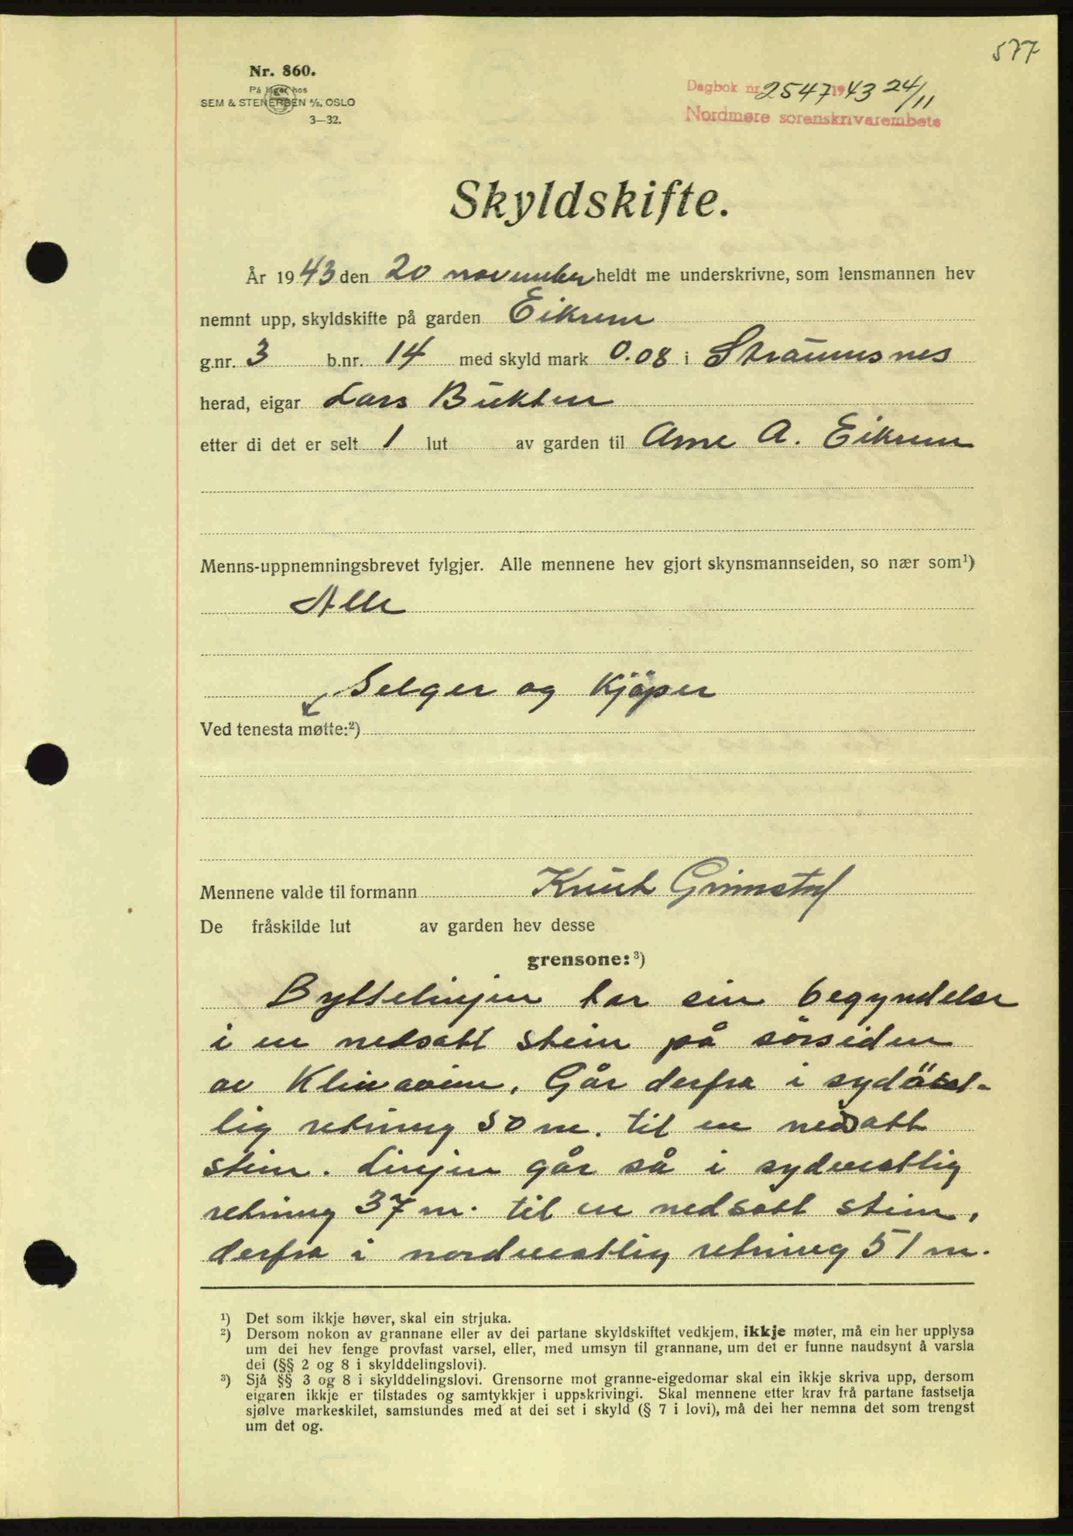 577
Nr. 860.
På lager hos
SEM & STENERSEN A/S, OSLO
3—32.
Dagbok nr. 2547 1943 24/11
Nordmøre sorenskrivarembete
Skyldskifte.
År 1943 den 20 november heldt me underskrivne, som lensmannen hev
nemnt upp, skyldskifte på garden Eikrem
g.nr. 3 b.nr. 14 med skyld mark 0.08 i Straumsnes
herad, eigar Lars Bukten
etter di det er selt 1 lut av garden til Arne A. Eikrem
Menns-uppnemningsbrevet fylgjer. Alle mennene hev gjort skynsmannseiden, so nær som¹)
Alle
Selger og Kjøper
Ved tenesta møtte:²)
Mennene valde til formann Knut Grimstad
De fråskilde lut av garden hev desse
grensone:³)
Byttelinjen tar sin begyndelse
i en nedsatt stein på sörsiden
av. Går derfra i sydöst-
lig retning 50 m. til en nedsatt
stein. Linjen går så i sydvestlig
retning 37 m. til en nedsatt stein,
derfra i nordvestlig retning 51 m.
¹) Det som ikkje høver, skal ein strjuka.
²) Dersom nokon av grannane eller av dei partane skyldskiftet vedkjem, ikkje møter, må ein her upplysa
um dei hev fenge provfast varsel, eller, med umsyn til grannane, um det er funne naudsynt å varsla
dei (§§ 2 og 8 i skylddelingslovi).
³) Sjå §§ 3 og 8 i skylddelingslovi. Grensorne mot granne-eigedomar skal ein ikkje skriva upp, dersom
eigaren ikkje er tilstades og samtykkjer i uppskrivingi. Skal mennene etter krav frå partane fastsetja
sjølve markeskilet, samstundes med at dei set i skyld (§ 7 i lovi), må dei her nemna det som trengst
um det og.